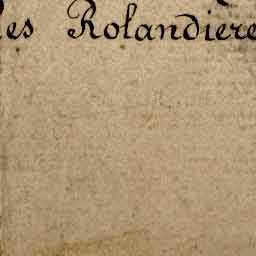 les Rolandiere